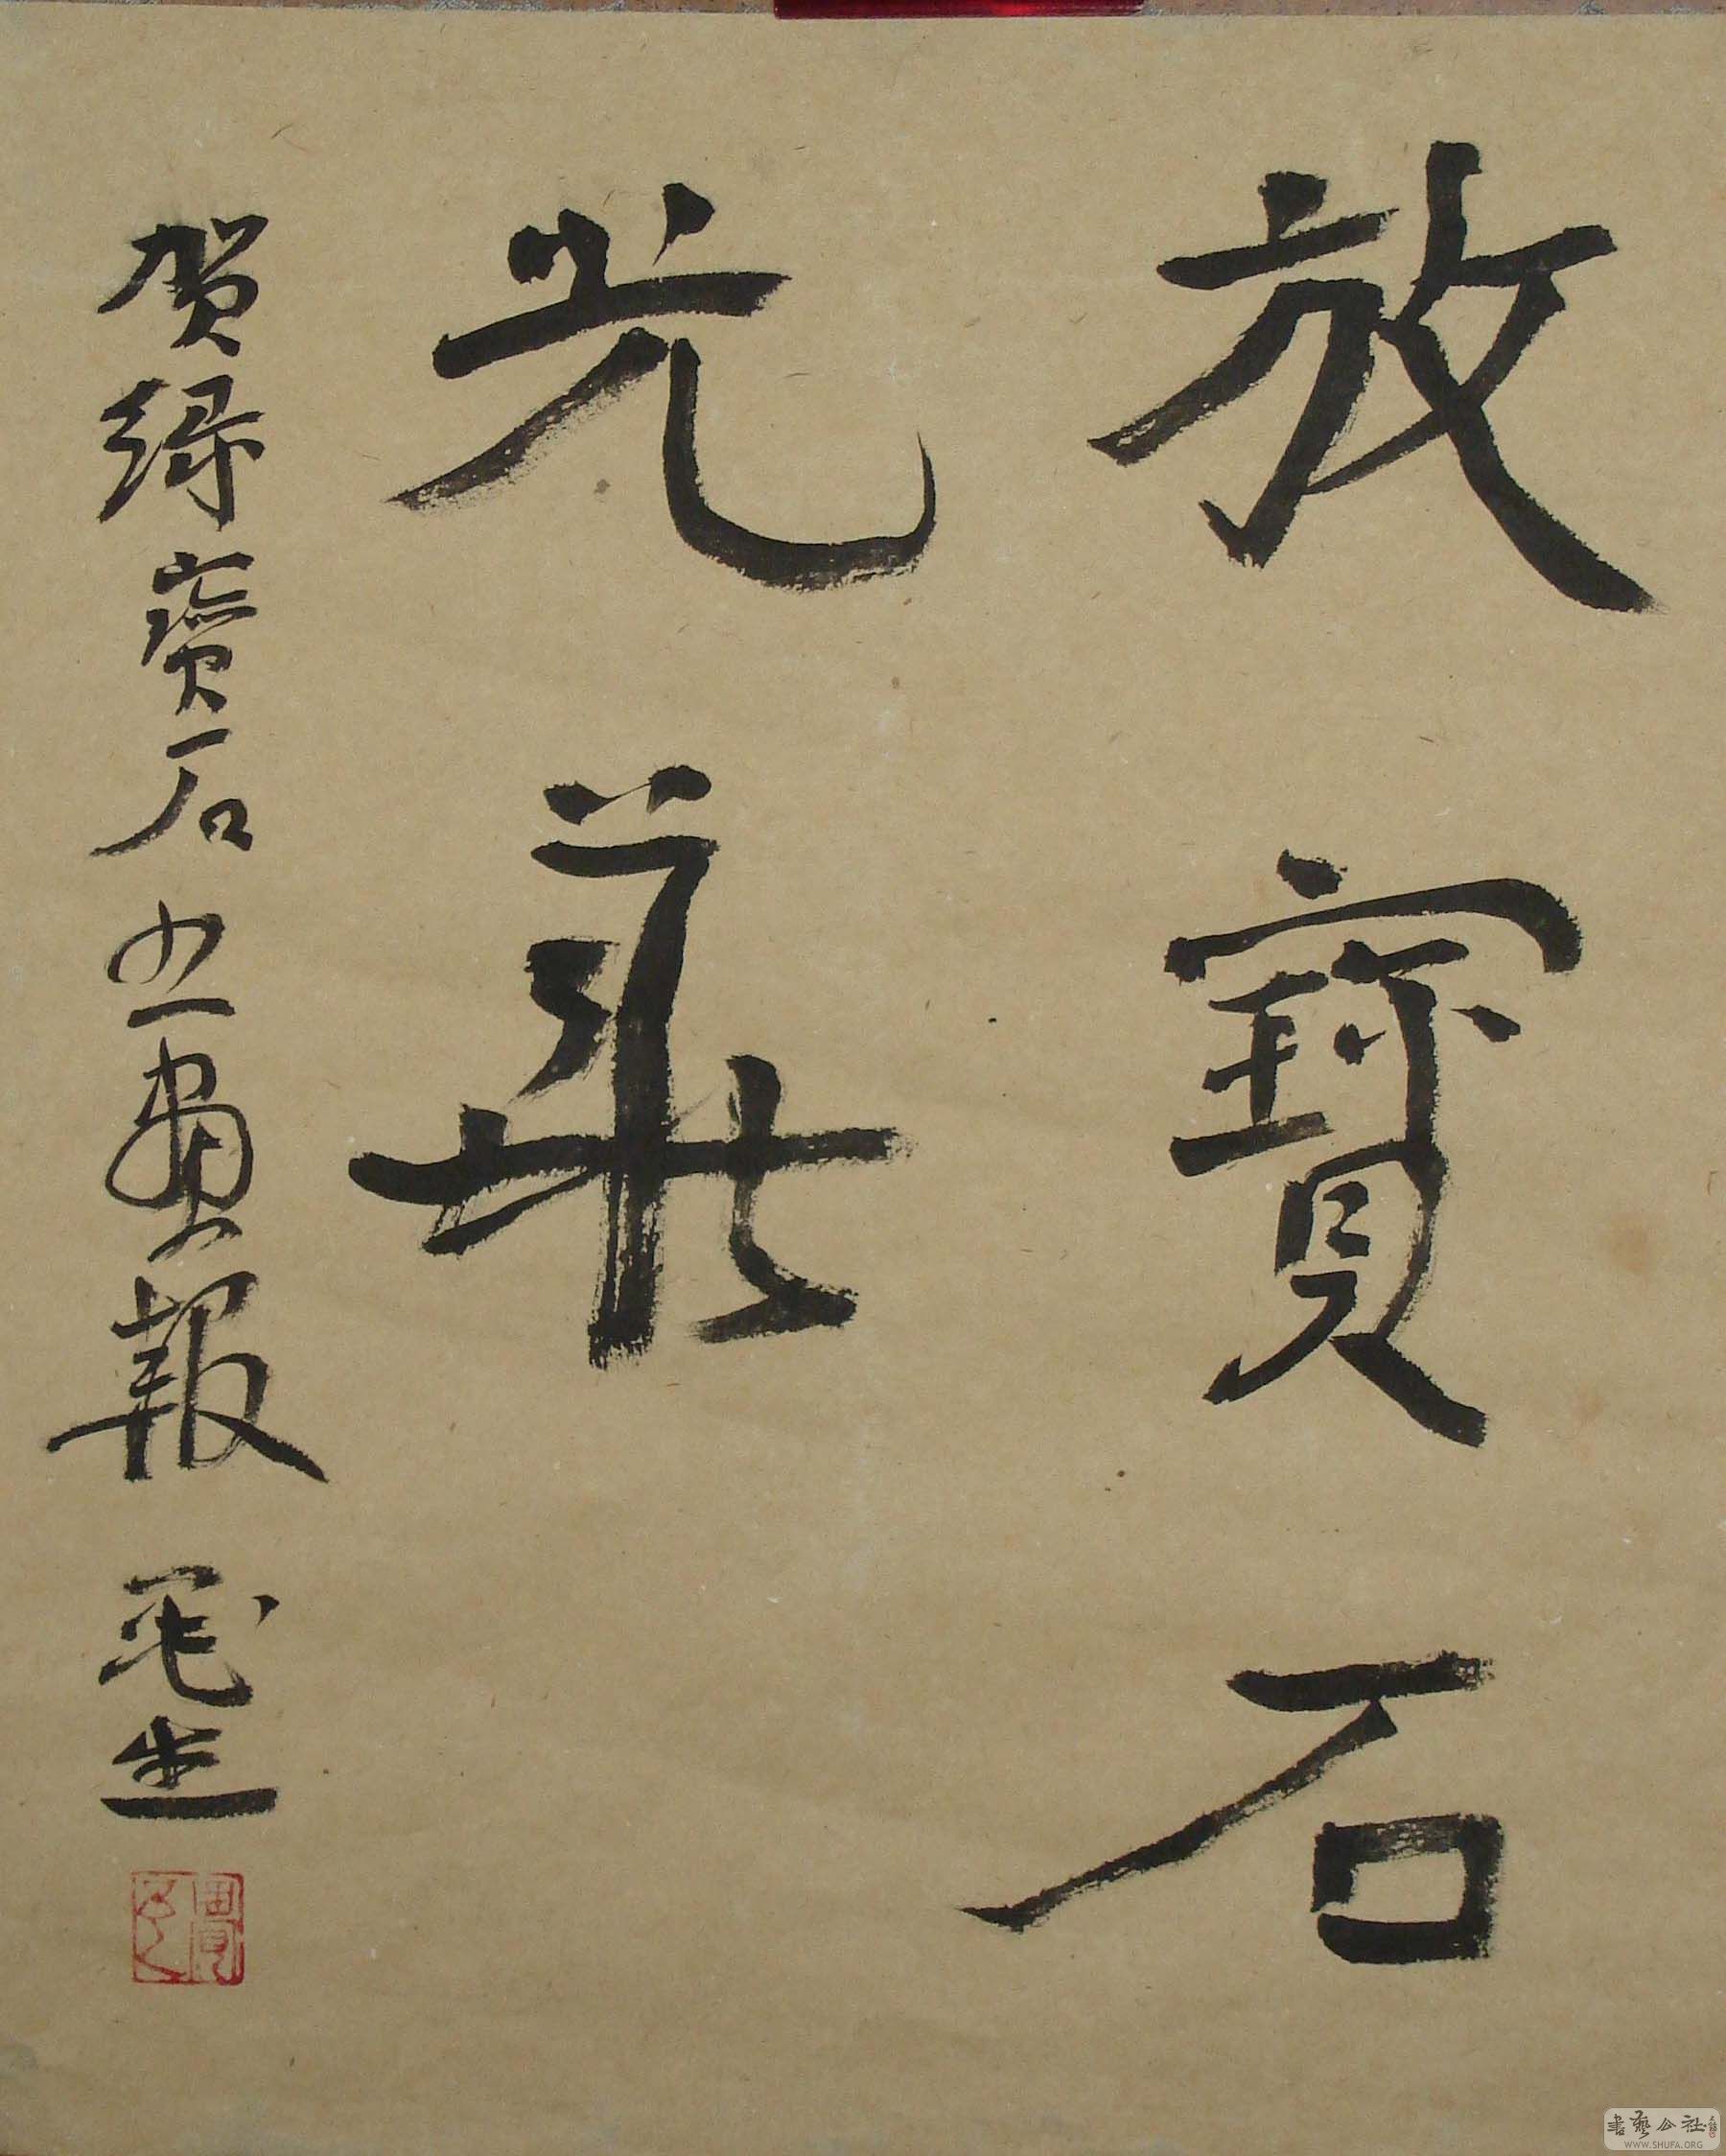 放寶石
光華
贺绿寶石书畫報
書藝公社
WWW.SHUFA.ORG